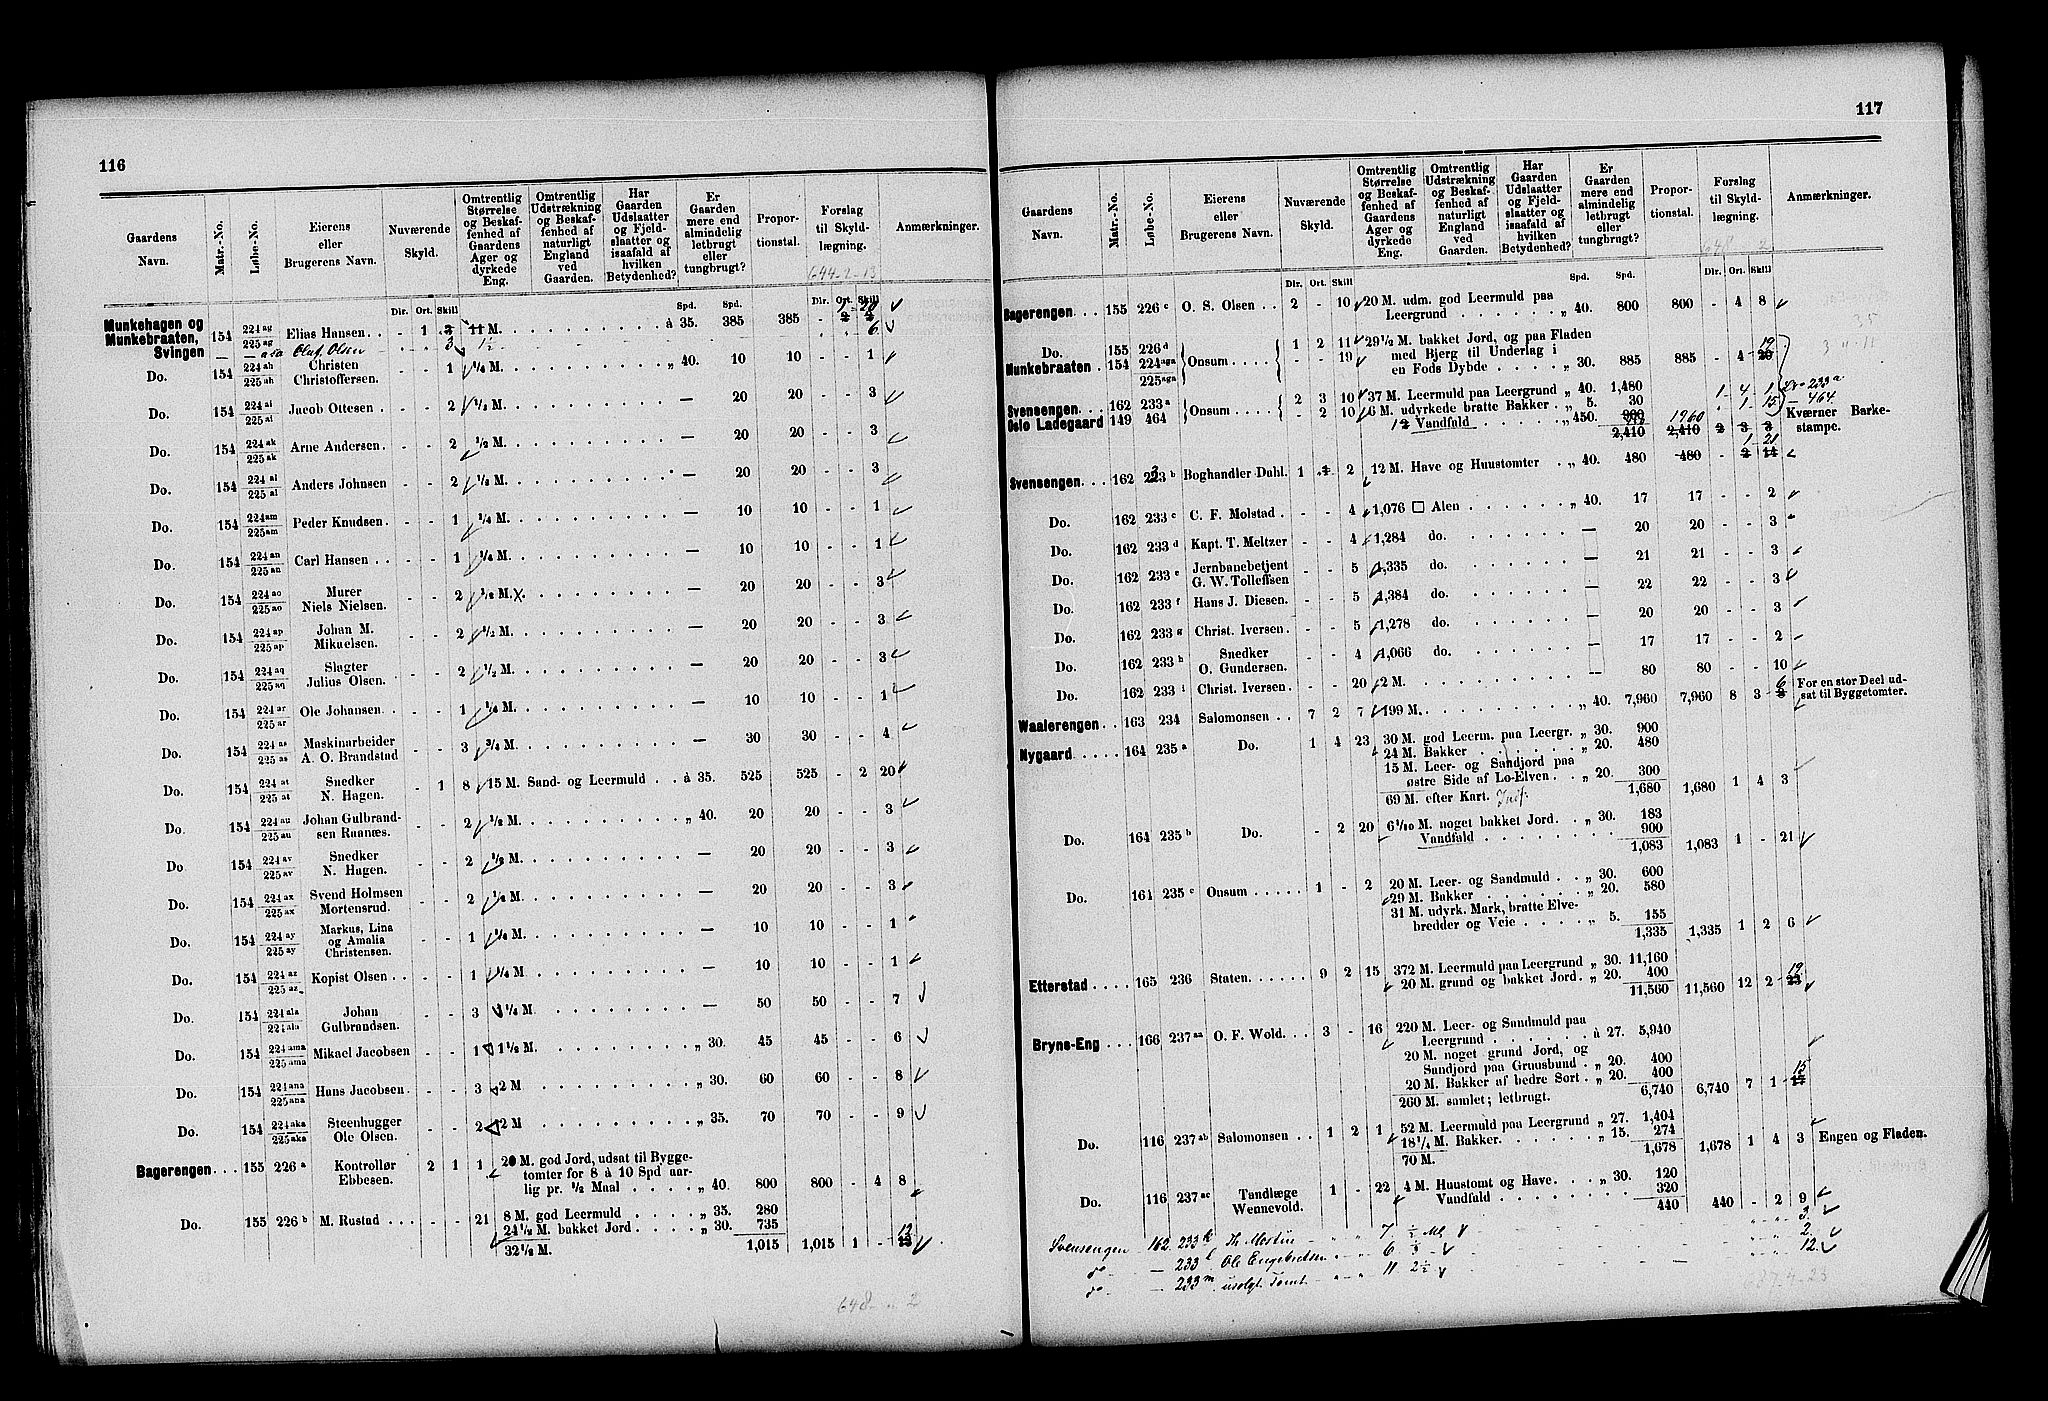 116
Gaardens Navn. Matr.-No. Løbe-No. Eierens eller Brugerens Navn. Nuværende Skyld. Omtrentlig Størrelse og Beskaffenhed af Gaardens Ager og dyrkede Eng. Omtrentlig Udstrækning og Beskaffenhed af naturligt England ved Gaarden. Har Gaarden Udslaatter og Fjeldslaatter og isaafald af hvilken Betydenhed? Er Gaarden mere end almindelig letbrugt eller tungbrugt? Proportionstal. Forslag til Skyldlægning. Anmærkninger.
644-2-13
Dlr. Ort. Skill Spd. Spd. Dlr. Ort. Skill
Munkehagen og Munkebraaten, Svingen 154 224 ag 225 ag Elias Hansen. . - 1 3 11 M. . . . à 35. 385 385 - 2
— — Oluf Olsen - - 3 1½ 6
Do. 154 224 ah 225 ah Christen Christoffersen. - - 1 1/4 M. . . . „ 40. 10 10 - - 1
Do. 154 224 ai 225 ai Jacob Ottesen . - - 2 1/2 M. . . . — 20 20 - - 3
Do. 154 224 ak 225 ak Arne Andersen. - - 2 1/2 M. . . . — 20 20 - - 3
Do. 154 224 al 225 al Anders Johnsen - - 2 1/2 M. . . . — 20 20 - - 3
Do. 154 224 am 225 am Peder Knudsen. - - 1 1/4 M. . . . — 10 10 - - 1
Do. 154 224 an 225 an Carl Hansen . . - - 1 1/4 M. . . . — 10 10 - - 1
Do. 154 224 ao 225 ao Murer Niels Nielsen. - - 2 1/2 M. . . . — 20 20 - - 3
Do. 154 224 ap 225 ap Johan M. Mikaelsen. - - 2 1/2 M. . . . — 20 20 - - 3
Do. 154 224 aq 225 aq Slagter Julius Olsen. - - 2 1/2 M. . . . — 20 20 - - 3
Do. 154 224 ar 225 ar Ole Johansen. . - - 1 1/4 M. . . . — 10 10 - - 1
Do. 154 224 as 225 as Maskinarbeider A. O. Brandstad - - 3 3/4 M. . . . — 30 30 - - 4
Do. 154 224 at 225 at Snedker N. Hagen. - 1 8 15 M. Sand- og Leermuld . . à 35. 525 525 - 2 20
Do. 154 224 au 225 au Johan Gulbrandsen Raanæs. - - 2 1/2 M. . . . „ 40. 20 20 - - 3
Do. 154 224 av 225 av Snedker N. Hagen. - - 2 1/2 M. . . . — 20 20 - - 3
Do. 154 224 ax 225 ax Svend Holmsen Mortensrud. - - 2 1/2 M. . . . — 20 20 - - 3
Do. 154 224 ay 225 ay Markus, Lina og Amalia Christensen. - - 1 1/4 M. . . . — 10 10 - - 1
Do. 154 224 az 225 az Kopist Olsen . . - - 1 1/4 M. . . . — 10 10 - - 1
Do. 154 224 ala 224 ala Johan Gulbrandsen. - - 3 1 1/4 M. . . . — 50 50 - - 7
Do. 154 224 ama 225 ama Mikael Jacobsen - - 1 1 1/2 M. . . . „ 30. 45 45 - - 6
Do. 154 224 ana 225 ana Hans Jacobsen. - - 3 2 M . . . „ 30. 60 60 - - 8
Do. 154 224 aka 225 aka Steenhugger Ole Olsen. - - 2 2 M . . . „ 35. 70 70 - - 9
Bagerengen . . . 155 226 a Kontrollør Ebbesen. 2 1 1 20 M. god Jord, udsat til Byggetomter for 8 à 10 Spd aarlig pr. 1/2 Maal . . . . „ 40. 800 800 - 4 8
Do. 155 226 b M. Rustad . . . - - 21 8 M. god Leermuld . . . . „ 35. 280
24 1/2 M. bakket Jord . . . „ 30. 735
32 1/2 M. 1,015 1,015 1 - 12
648 - „ 2
117
Gaardens Navn. Matr.-No. Løbe-No. Eierens eller Brugerens Navn. Nuværende Skyld. Omtrentlig Størrelse og Beskaffenhed af Gaardens Ager og dyrkede Eng. Omtrentlig Udstrækning og Beskaffenhed af naturligt England ved Gaarden. Har Gaarden Udslaatter og Fjeldslaatter og isaafald af hvilken Betydenhed? Er Gaarden mere end almindelig letbrugt eller tungbrugt? Proportionstal. Forslag til Skyldlægning. Anmærkninger.
648 2
Dlr. Ort. Skill Spd. Spd. Dlr. Ort. Skill
Bagerengen. . . . 155 226 c O. S. Olsen . . 2 - 10 20 M. udm. god Leermuld paa Leergrund . . . . „ 40. 800 800 - 4 8
Do. 155 226 d Onsum . . . . 1 2 11 29 1/2 M. bakket Jord, og paa Fladen
Munkebraaten 154 224 aga 225 aga - - 19 med Bjerg til Underlag i en Fods Dybde . . . . „ 30. 885 885 - 4 19
Svensengen . . . 162 233 a Onsum . . . . 2 3 10 37 M. Leermuld paa Leergrund „ 40. 1,480 1 4 1 Lno 233 a
Oslo Ladegaard 149 464 - 2 10 6 M. udyrkede bratte Bakker . „ 5. 30 1 15 — 464.
1/2 Vandfald . . . . „ 450. 900 1960 Kværner Barkestampe.
2,410 2,410 2 3 3
Svensengen. . . 162 223 b Boghandler Dahl. 1 1 2 12 M. Have og Huustomter . „ 40. 480 480 - 1 21
Do. 162 233 c C. F. Molstad . - - 4 1,076 □ Alen . . . . „ 40. 17 17 - - 2
Do. 162 233 d Kapt. T. Meltzer - - 4 1,284 do. . . . — 20 20 - - 3
Do. 162 233 e Jernbanebetjent G. W. Tolleffsen - - 5 1,335 do. . . . — 21 21 - - 3
Do. 162 233 f Hans J. Diesen. - - 5 1,384 do. . . . — 22 22 - - 3
Do. 162 233 g Christ. Iversen. - - 5 1,278 do. . . . — 20 20 - - 3
Do. 162 233 h Snedker O. Gundersen. - - 4 1,066 do. . . . — 17 17 - - 2
Do. 162 233 i Christ. Iversen. - - 20 2 M. . . . — 80 80 - - 10
Waalerengen . . 163 234 Salomonsen . . 7 2 7 199 M. . . . „ 40. 7,960 7,960 8 3 6 For en stor Deel udsat til Byggetomter.
Nygaard . . . . 164 235 a Do. 1 4 23 30 M. god Leerm. paa Leergr. „ 30. 900
24 M. Bakker . . . . „ 20. 480
15 M. Leer- og Sandjord paa østre Side af Lo-Elven . . „ 20. 300
69 M. efter Kart. 1,680 1,680 1 4 3
Do. 164 235 b Do. - 2 20 6 1/10 M. noget bakket Jord. . „ 30. 183
Vandfald . . . . 900
1,083 1,083 1 - 21
Do. 164 235 c Onsum . . . . 1 - 2 20 M. Leer- og Sandmuld . . „ 30. 600
29 M. Bakker . . . . „ 20. 580
31 M. udyrk. Mark, bratte Elvebredder og Veie . . . „ 5. 155
1,335 1,335 1 2 6
Etterstad . . . . 165 236 Staten. . . . . 9 2 15 372 M. Leermuld paa Leergrund „ 30. 11,160
20 M. grund og bakket Jord. „ 20. 400
11,560 11,560 12 2 19
Bryns-Eng . . . 166 237 aa O. F. Wold. . . 3 - 16 220 M. Leer- og Sandmuld paa Leergrund . . . . à 27. 5,940
20 M. noget grund Jord, og Sandjord paa Gruusbund . „ 20. 400
20 M. Bakker af bedre Sort . „ 20. 400
260 M. samlet; letbrugt. 6,740 6,740 7 1 15
Do. 116 237 ab Salomonsen . . 1 2 1 52 M. Leermuld paa Leergrund „ 27. 1,404
18 1/4 M. Bakker. . . . „ 15. 274
70 M. 1,678 1,678 1 4 3 Engen og Fladen.
Do. 116 237 ac Tandlæge Wennevold. 1 - 22 4 M. Huustomt og Have. . . „ 30. 120
Vandfald . . . . 320
440 440 - 2 9
Svensengen — 162 233 k Th Mostue „ „ 7 ½ Ml 3.
do — 233 l Ole Engebretsen „ „ 6 ½ 2.
do — 233 m usolgt Tomt „ „ 11 2½ 12.